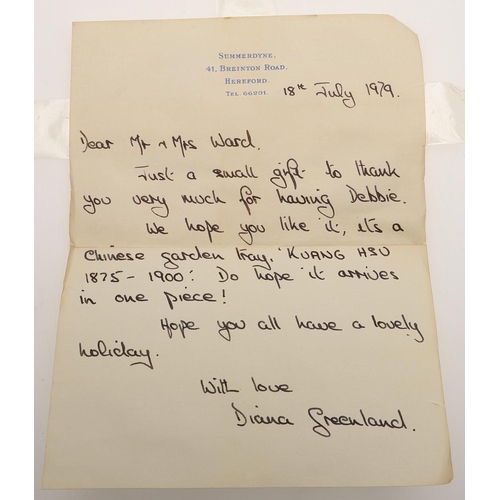 SUMMERDYNE.
41, BREINTON ROAD.
HEREFORD.
TEL. 66201.
18th July 1979.
Dear Mr + Mrs Ward.
Just a small gift to thank
you very much for having Debbie.
We hope you like it, it's a
Chinese garden tray, 'KUANG HSU
1875 - 1900'. Do hope it arrives
in one piece!
Hope you all have a lovely
holiday.
With love
Diana Greenland.